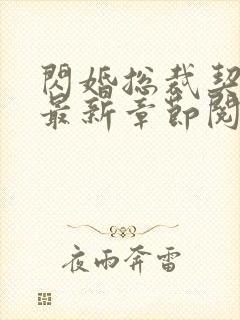 閃婚总裁契
最新章節閱
夜雨奔雷